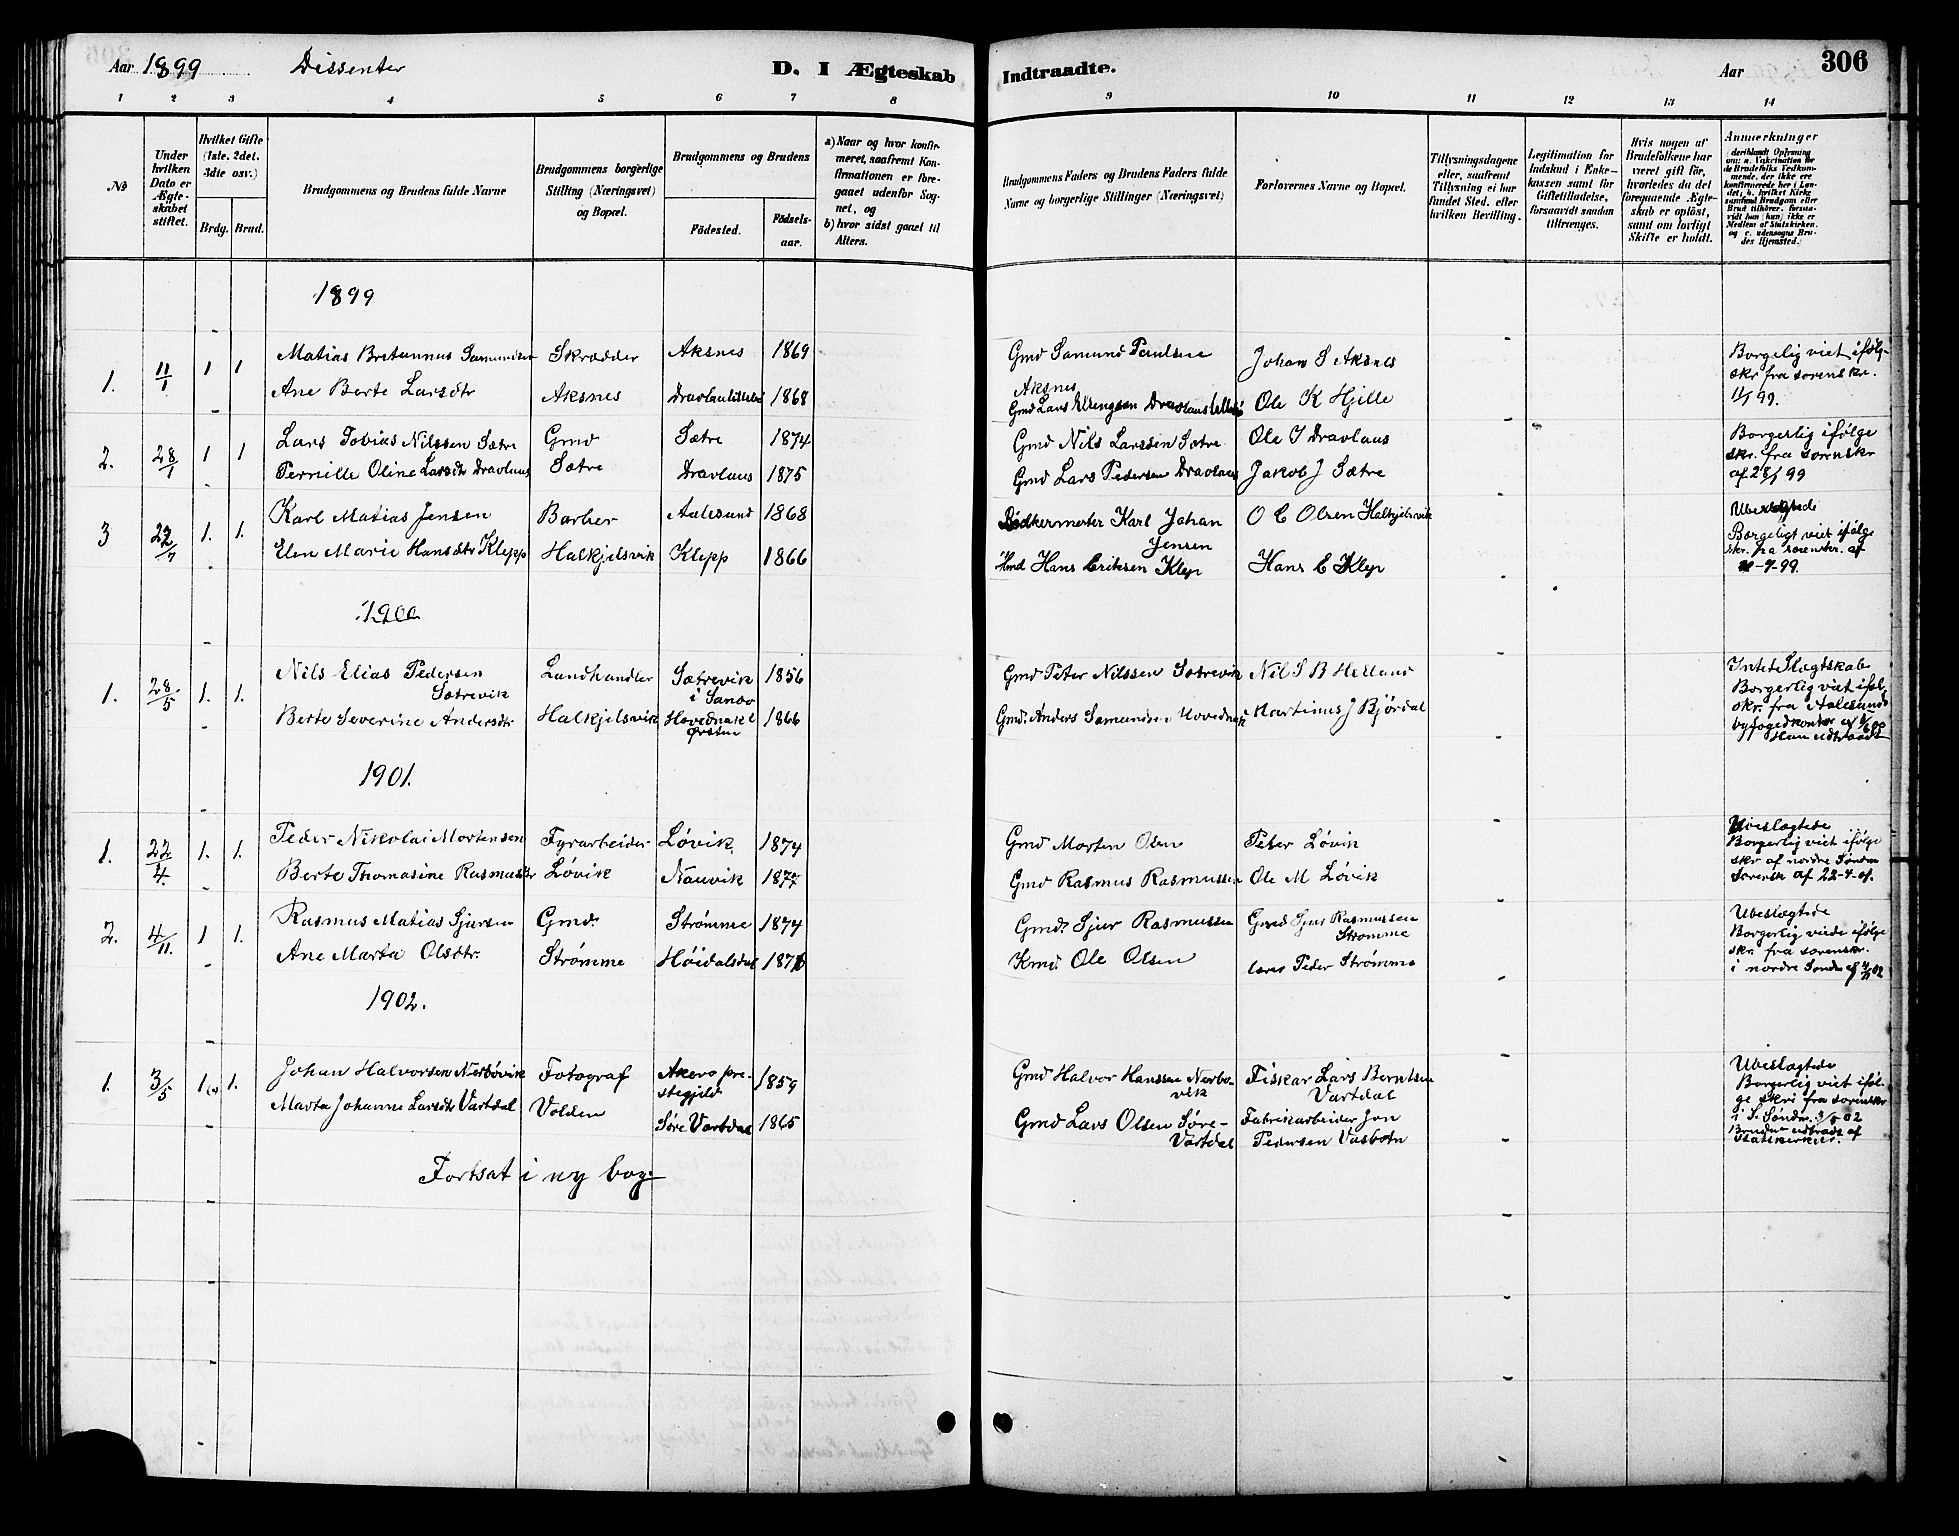 Aar 1899 Dissenter D. I Ægteskab Indtraadte. Aar 306
1 2 3 4 5 6 7 8 9 10 11 12 13 14
No
Under hvilken Dato er Ægteskabet stiftet.
Hvilket Gifte (1ste, 2det, 3die osv.)
Brdg. Brud.
Brudgommens og Brudens fulde Navne
Brudgommens borgerlige Stilling (Næringsvei) og Bopæl.
Brudgommens og Brudens
Fødested. Fødselsaar.
a) Naar og hvor konfirmeret, saafremt Konfirmationen er foregaaet udenfor Sognet, og
b) hvor sidst gaaet til Alters.
Brudgommens Faders og Brudens Faders fulde Navne og borgerlige Stillinger (Næringsvei)
Forlovernes Navne og Bopæl.
Tillysningsdagene eller, saafremt Tillysning ei har fundet Sted, efter hvilken Bevilling.
Legitimation for Indskud i Enkekassen samt for Giftetilladelse, forsaavidt saadan tiltrænges.
Hvis nogen af Brudefolkene har været gift før, hvorledes da det foregaaende Ægteskab er opløst, samt om lovligt Skifte er holdt.
Anmærkninger
1899
1. 11/1 1 1 Matias Bretannus Samundsen Skrædder Aksnes 1869 Gmd Samund Paulsen Aksnes Johan S Aksnes Borgelig viet ifølg. skr fra sorenskr. 11/1 99.
Ane Berte Larsdtr Aksnes Dravlauslillebø 1868 Gmd Lars Ellingsen Dravlaus Ole K Hjelle
2. 28/1 1 1 Lars Tobias Nilssen Sætre Gmd Sætre 1874 Gmd Nils Larssen Sætre Ole J Dravlaus Borgerlig ifølge skr. fra sorenskr af 28/1 99
Pernille Oline Larsdtr Dravlaus Sætre Dravlaus 1875 Gmd Lars Pedersen Dravlaus Jakob J Sætre
3 22/7 1. 1. Karl Matias Jensen Barber Aalesund 1868 Bødkermester Karl Johan Jensen O C Olsen Halkjelsvik Ubeslægtede Borgeligt viet ifølge skr. fra sorenskr. af -7-99.
Elen Marie Hansdtr Klepp Halkjelsvik Klepp 1866 Hmd Hans Eriksen Klep Hans E Klep
1900
1. 28/5 1. 1. Nils Elias Pedersen Sætrevik Landhandler Sætrevik i Sansø 1856 Gmd Peter Nilssen Sætrevik Nil S B Helland Intet Slægtskab. Borgerlig viet iføl. skr. fra Aalesunds byfogedkontor af Han udtraadt
Berte Severine Andersdtr Halkjelsvik Hovdenakk Ørsten 1866 Gmd. Anders Samundsen Hovdenak Martinus J Bjørdal
1901.
1. 22/4. 1. 1. Peder Nikolai Mortensen Fyrarbeider Løvik. 1874 Gmd Morten Olsen Peter Løvik Ubeslægtede Borgerlig viet ifølge skr af nordre Søndm Sorensk af 22-4-01.
Berte Thomasine Rasmusdtr Løvik Nauvik 1877 Gmd Rasmus Rasmussen Ole M Løvik
2. 4/11. 1 1. Rasmus Matias Sjursen Gmd. Strømme 1874 Gmd. Sjur Rasmussen Gmd Sjur Rasmussen Strømme Ubeslægtede Borgerlig viede ifølge skr. fra sorenskr. i nordre Søndm
Ane Marta Olsdtr. Strømme Høidalsdal Kmd. Ole Olsen Peder Strømme
1902.
1. 3/5 1. 1. Johan Halvorsen Nerbøvik Fotograf Akerø prestegjeld 1859 Gmd Halvor Hanssen Nerbøvik Fiskar Lars Berntsen Vartdal Ubeslægtede Borgerlig viet ifølge skri fra sorenskr i S. Søndm. 3/5 02 Bruden udtraadt af statskirken.
Marta Johanne Larsdtr Vartdal Volden Søre Vartdal 1865 Gmd Lars Olsen Søre-Vartdal Fabrikarbeider Jon Pedersen Vasbotn
Fortsat i ny bog.